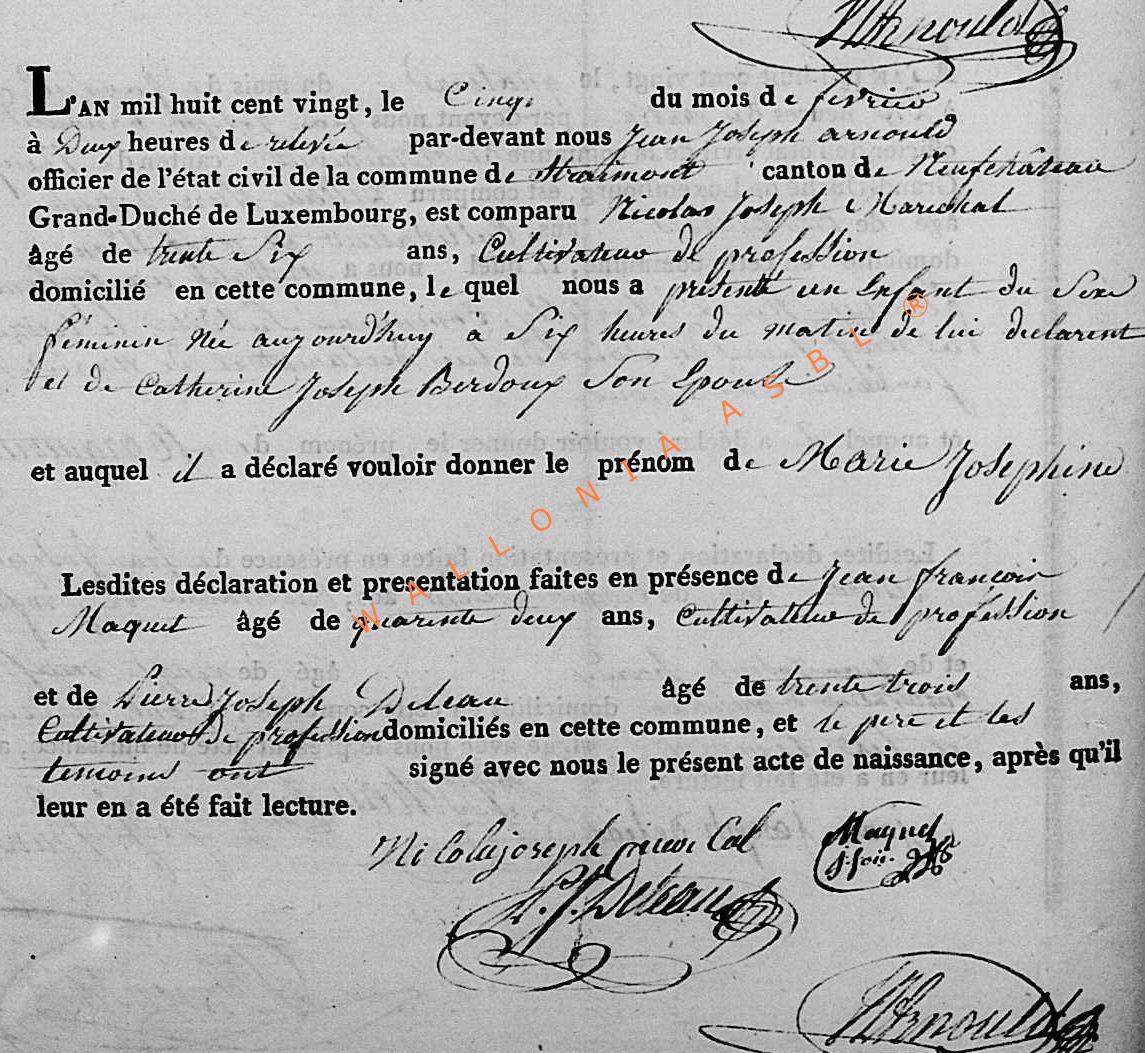 Arnould
L'AN mil huit cent vingt, le Cinq du mois de fevrier
à Deux heures de relevée par-devant nous Jean Joseph arnould
officier de l'état civil de la commune de Straimont canton de Neufchateau
Grand-Duché de Luxembourg, est comparu Nicolas Joseph Marechal
âgé de trente Six ans, Cultivateur de profession
domicilié en cette commune, le quel nous a présenté un Enfant du Sexe
féminin née aujourd'huy à Six heures du matin de lui declarent
et de Catherine Joseph Berdoux Son Epouse
et auquel il a déclaré vouloir donner le prénom de Marie Josephine
Lesdites déclaration et presentation faites en présence de Jean françois
Maquet âgé de quarente deux ans, Cultivateur de profession
et de Pierre Joseph Deleau âgé de trente trois ans,
Cultivateur De profession domiciliés en cette commune, et le pere et les
temoins ont signé avec nous le présent acte de naissance, après qu'il
leur en a été fait lecture.
Ni Colas joseph Maquet
P. J. Deleau
Arnould
WALLONIA ASBL ®